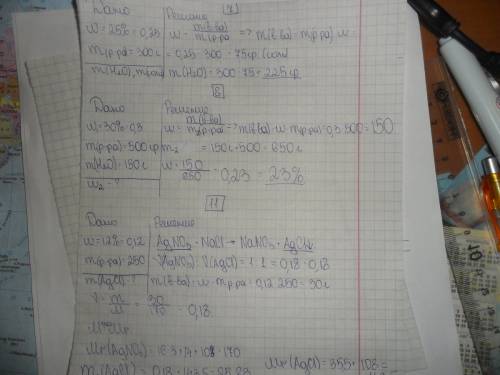 Дано Решение
w = 25% = 0,25 w = m(в-ва)/m(р-ра) => m(в-ва) = m(р-ра)·w =
m(р-ра) = 300 г = 0,25 · 300 = 75гр (соли)
m(H2O), m m(H2O) = 300 - 75 = 225 гр
8
Дано Решение
w = 30% = 0,3 w = m(в-ва)/m(р-ра) => m(в-ва) = w · m(р-ра) = 0,3·500 = 150
m(р-ра) = 500 гр m2 = 150г + 500 = 650г
m(H2O) = 150 г w = 150/650 = 0,23 = 23%
w2 - ?
11
Дано Решение
w = 12% = 0,12 AgNO3 + NaCl → NaNO3 + AgCl↓
m(р-ра) = 250 ν(AgNO3) : ν(AgCl) = 1 : 1 = 0,18 : 0,18
m(AgCl) - ? m(в-ва) = w · m р-ра = 0,12 · 250 = 30г
ν = m/M = 30/170 = 0,18
M = Mr
Mr(AgNO3) = 16·3 + 14 + 108 = 170
m(AgCl) = 0,18 · 143,5 = 25,83 Mr(AgCl) = 35,5 + 108 =